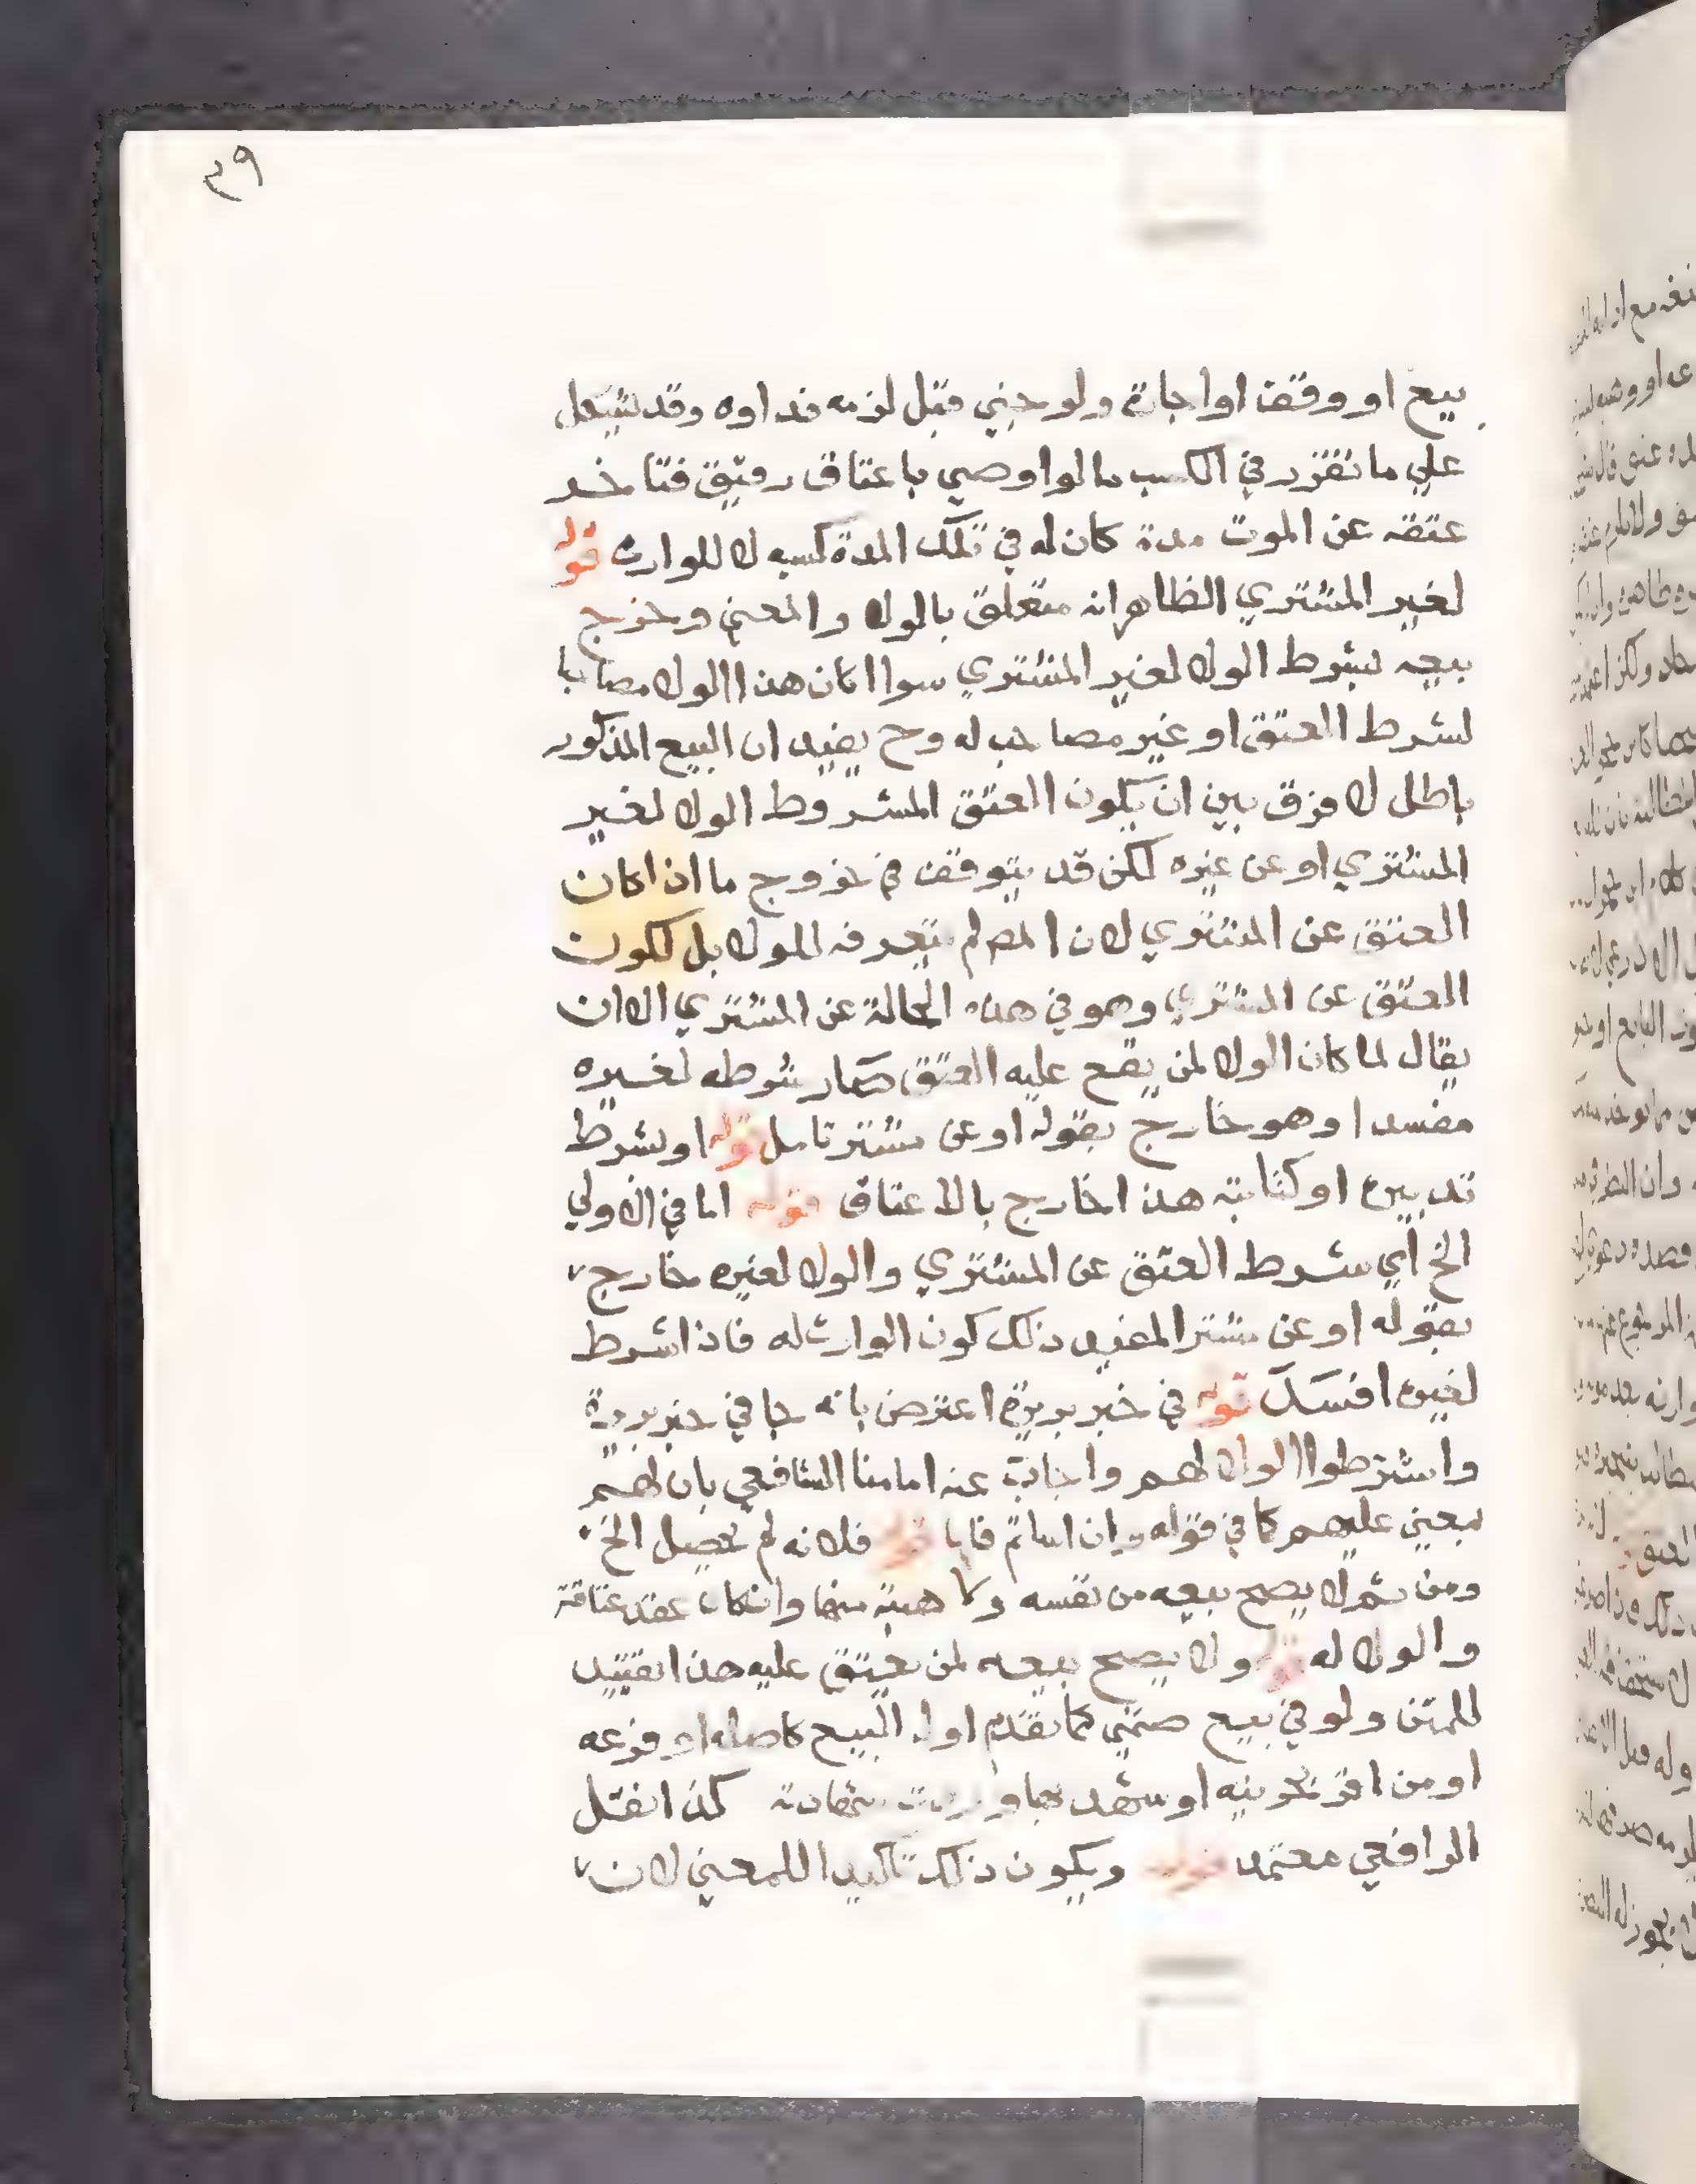 ٣٩
بيع او وقف او اجارة ولو جني قبل لزمه فداوه وقد يشكل
علي ما تقرر في الكسب ما لو اوصي باعتاق رقيق فتاخر
عتقه عن الموت مدة كان له في تلك المدة كسبه لا للوارث قوله
لغير المشتري الظاهر انه متعلق بالولا والمعني وخرج
بيعه بشرط الولا لغير المشتري سوا اكان هذا الولا مصاحبا
لشرط العتق او غير مصاحب له وح يفيد ان البيع المذكور
باطل لا فرق بين ان يكون العتق المشروط الولا لغير
المشتري او عن غيره لكن قد يتوقف في خروج ما اذا كان
العتق عن المشتري لان المص لم يتعرض للولا بل لكون
العتق عن المشتري وهو في هذه الحالة عن المشتري الا ان
يقال لما كان الولا لمن يقع عليه العتق صار شرطه لغيره
مفسدا وهو خارج بقوله او عن مشتر تامل قوله او بشرط
تدبيره او كتابته هذا خارج بالاعتاق قوله اما في الاولي
الخ اي شرط العتق عن المشتري والولا لغيره خارج
بقوله او عن مشتر المفيد ذلك كون الوارث له فاذا شرط
لغيره افسد قوله في خبر بريرة اعترض بانه جا في خبر بريرة
واشترطوا الولا لهم واجاب عنه امامنا الشافعي بان لهم
بمعني عليهم كما في قوله وان اساتم فلها قوله فلانه لم يحصل الخ
ومن ثم لا يصح بيعه من نفسه ولا هبة منها وانكان عقد عتاقة
والولا له قوله ولا يصح بيعه لمن يعتق عليه هذا تقييد
للمتن ولو في بيع ضمني كما تقدم اول البيع كاصله او فرعه
او من اقر بحريته او شهد بها وردت شهادته كذا نقل
الرافعي معتمد قوله ويكون ذلك تاكيدا للمعني لان